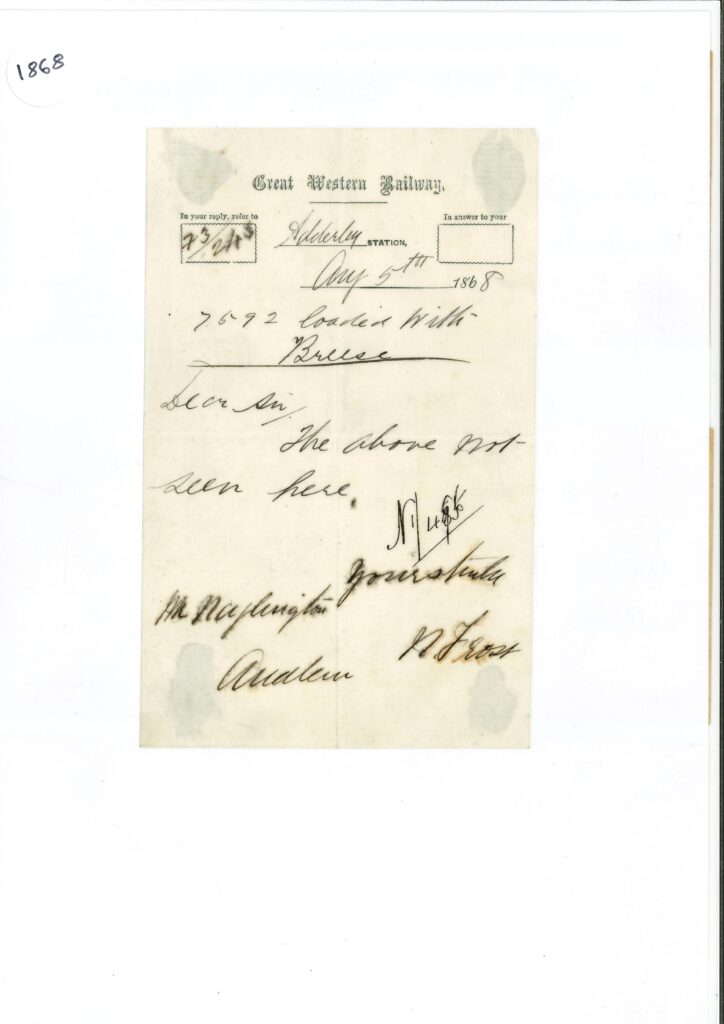 1868
Great Western Railway.
In your reply, refer to
In answer to your
Adderley STATION,
Aug 5th 1868
7592 loaded with
Breese
Dear Sir/
The above not
seen here.
N1/486
Yours truly
Mr Naylington
N. Frost
Audlem